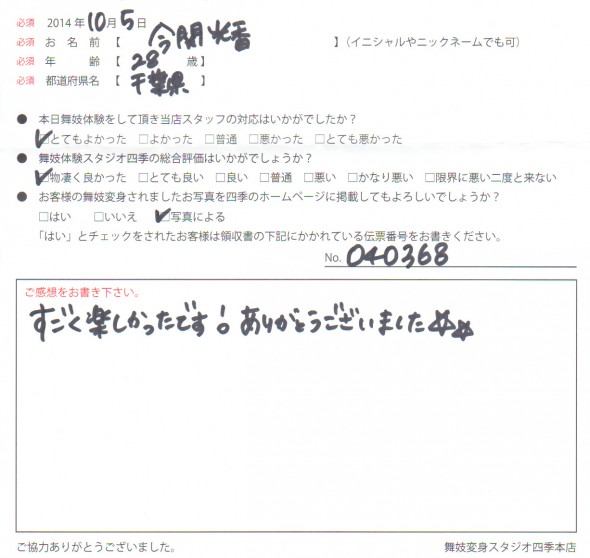 必須 2014年10月5日
必須 お名前【 今関 光香 】（イニシャルやニックネームでも可）
必須 年齢【 28 歳】
必須 都道府県名【 千葉県 】
● 本日舞妓体験をして頂き当店スタッフの対応はいかがでしたか？
☑とてもよかった □よかった □普通 □悪かった □とても悪かった
● 舞妓体験スタジオ四季の総合評価はいかがでしょうか？
☑物凄く良かった □とても良い □良い □普通 □悪い □かなり悪い □限界に悪い二度と来ない
● お客様の舞妓変身されましたお写真を四季のホームページに掲載してもよろしいでしょうか？
□はい □いいえ ☑写真による
「はい」とチェックをされたお客様は領収書の下記にかかれている伝票番号をお書きください。
No. 040368
ご感想をお書き下さい。
すごく楽しかったです！ありがとうございました☆☆
ご協力ありがとうございました。 舞妓変身スタジオ四季本店